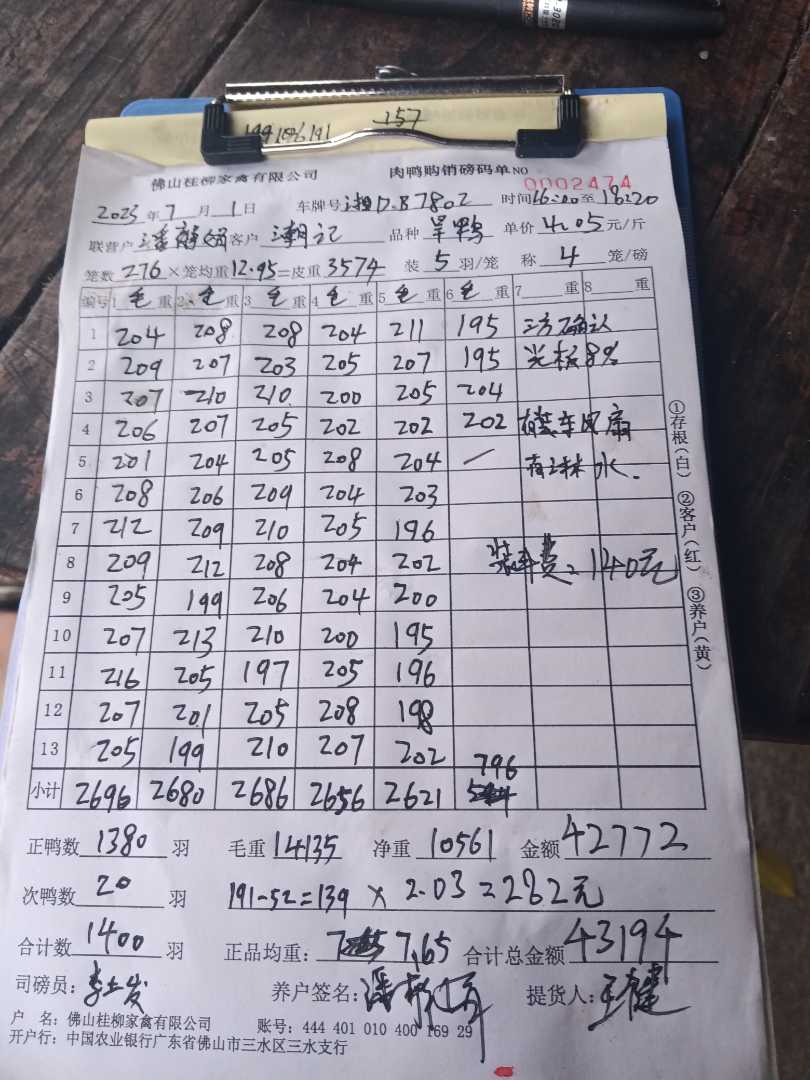 157
佛山桂柳家禽有限公司 肉鸭购销磅码单NO 0002474
2023年7月1日 车牌号湘D.B7802 时间16:00至18:20
联营户 客户 潮记 品种 旱鸭 单价 4.05元/斤
笼数276×笼均重12.95=皮重3574 装5羽/笼 称4笼/磅
编号 1毛重 2毛重 3毛重 4毛重 5毛重 6毛重 7重 8重
1 204 208 208 204 211 195 三方确认
2 209 207 203 205 207 195 光板8%
3 207 210 210 200 205 204
4 206 207 205 202 202 202 有装车风扇
5 201 204 205 208 204 / 有淋水.
6 208 206 209 204 203
7 212 209 210 205 196
8 209 212 208 204 202 装车费=140元
9 205 199 206 204 200
10 207 213 210 200 195
11 216 205 197 205 196
12 207 201 205 208 198
13 205 199 210 207 202
小计 2696 2680 2686 2656 2621 796
正鸭数1380羽 毛重14135 净重10561 金额42772
次鸭数20羽 191-52=139×2.03=282元
合计数1400羽 正品均重:7.65 合计总金额43194
司磅员: 养户签名: 提货人:
户 名:佛山桂柳家禽有限公司 账号:444 401 010 400 169 29
开户行:中国农业银行广东省佛山市三水区三水支行
①存根(白) ②客户(红) ③养户(黄)